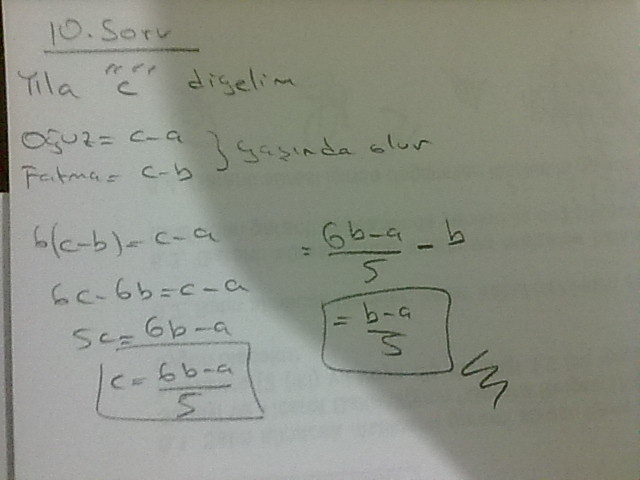 10. Soru
Yıla "c" diyelim
Oğuz = c-a
Fatma = c-b } yaşında olur
6(c-b) = c-a
6c-6b = c-a
5c = 6b-a
c = 6b-a / 5
= 6b-a / 5 - b
= b-a / 5